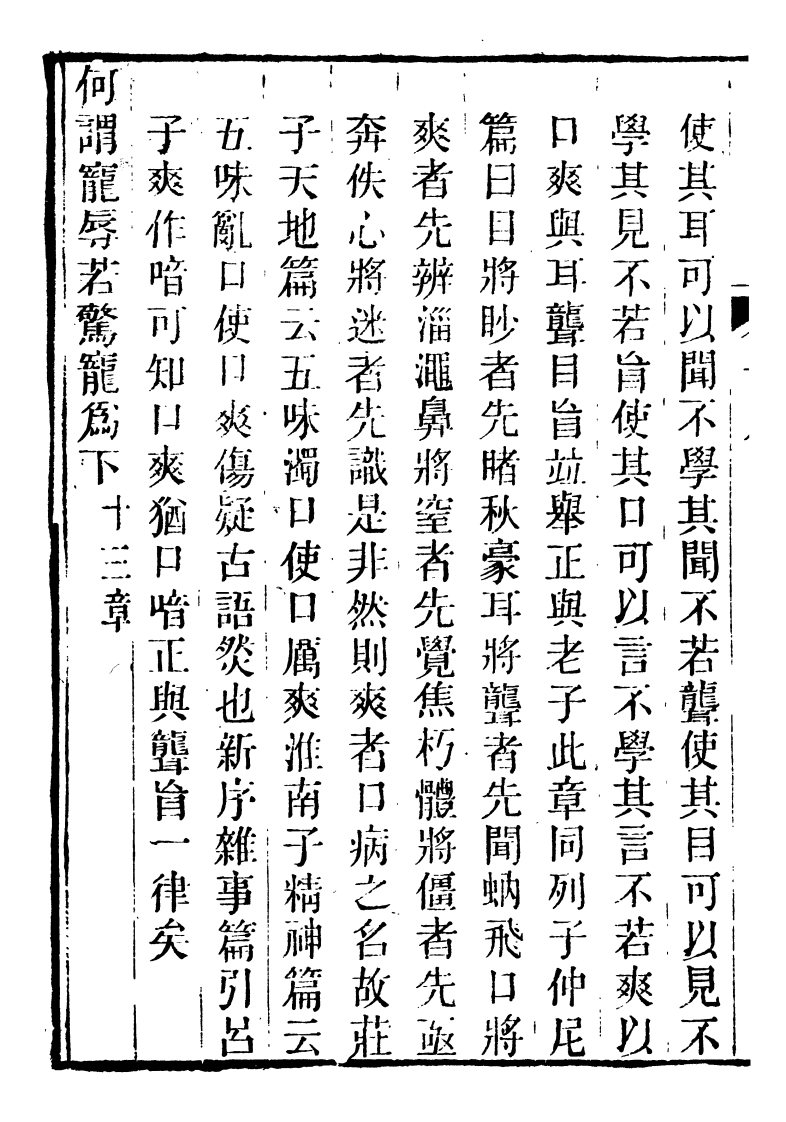 使其耳可以聞不學其聞不若聾使其目可以見不
學其見不若盲使其口可以言不學其言不若爽以
口爽與耳聾目盲竝舉正與老子此章同列子仲尼
篇曰目將眇者先睹秋豪耳將聾者先聞蚋飛口將
爽者先辨淄澠鼻將窒者先覺焦朽體將僵者先亟
奔佚心將迷者先識是非然則爽者口病之名故莊
子天地篇云五味濁口使口厲爽淮南子精神篇云
五味亂口使口爽傷疑古語然也新序雜事篇引呂
子爽作喑可知口爽猶口喑正與聾盲一律矣
何謂寵辱若驚寵爲下十三章